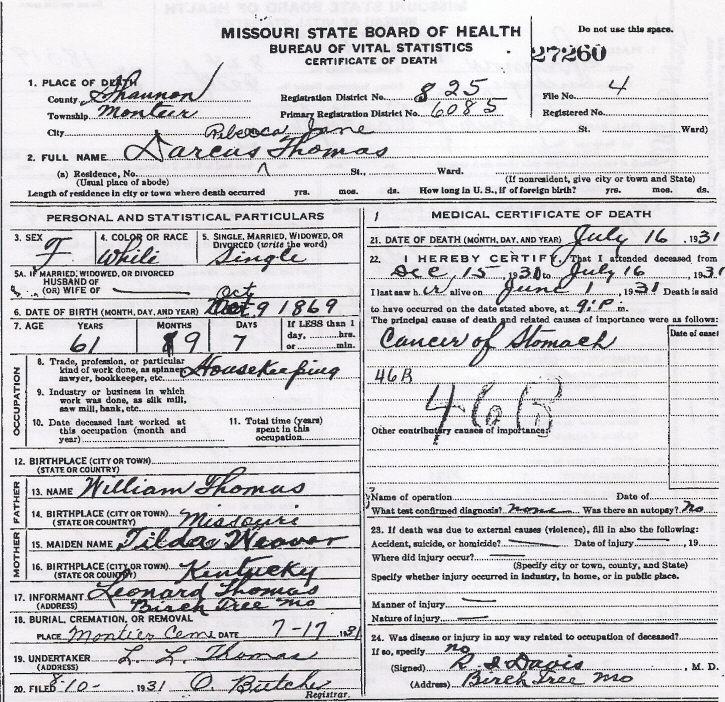 MISSOURI STATE BOARD OF HEALTH
BUREAU OF VITAL STATISTICS
CERTIFICATE OF DEATH
Do not use this space.
27260
1. PLACE OF DEATH
County Shannon
Township Montier
City
Registration District No. 825
Primary Registration District No. 6085
File No. 4
Registered No.
St. Ward)
Rebecca Jane
2. FULL NAME Darcus Thomas
(a) Residence, No. St., Ward.
(Usual place of abode) (If nonresident, give city or town and State)
Length of residence in city or town where death occurred yrs. mos. ds. How long in U. S., if of foreign birth? yrs. mos. ds.
PERSONAL AND STATISTICAL PARTICULARS
3. SEX F
4. COLOR OR RACE White
5. SINGLE, MARRIED, WIDOWED, OR DIVORCED (write the word) Single
5A. IF MARRIED, WIDOWED, OR DIVORCED
HUSBAND OF
(OR) WIFE OF
Oct
6. DATE OF BIRTH (MONTH, DAY, AND YEAR) 9 1869
7. AGE YEARS MONTHS DAYS If LESS than 1
61 9 7 day, hrs.
or min.
OCCUPATION
8. Trade, profession, or particular
kind of work done, as spinner, Housekeeping
sawyer, bookkeeper, etc.
9. Industry or business in which
work was done, as silk mill,
saw mill, bank, etc.
10. Date deceased last worked at
this occupation (month and
year)
11. Total time (years)
spent in this
occupation
12. BIRTHPLACE (CITY OR TOWN)
(STATE OR COUNTRY)
FATHER
13. NAME William Thomas
14. BIRTHPLACE (CITY OR TOWN)
(STATE OR COUNTRY) Missouri
MOTHER
15. MAIDEN NAME Tilda Weaver
16. BIRTHPLACE (CITY OR TOWN)
(STATE OR COUNTRY) Kentucky
17. INFORMANT Leonard Thomas
(ADDRESS) Birch Tree Mo
18. BURIAL, CREMATION, OR REMOVAL
PLACE Montier Cem DATE 7-17 1931
19. UNDERTAKER L. L. Thomas
(ADDRESS)
20. FILED 8-10- 1931 O. Butcher
Registrar.
MEDICAL CERTIFICATE OF DEATH
21. DATE OF DEATH (MONTH, DAY, AND YEAR) July 16 1931
22. I HEREBY CERTIFY, That I attended deceased from
Dec 15, 1930 to July 16 1931
I last saw her alive on June 1 1931 Death is said
to have occurred on the date stated above, at 9 P. m.
The principal cause of death and related causes of importance were as follows:
Date of onset
Cancer of Stomach
46B
46B
Other contributory causes of importance:
Name of operation Date of
What test confirmed diagnosis? none Was there an autopsy? no
23. If death was due to external causes (violence), fill in also the following:
Accident, suicide, or homicide? Date of injury , 19
Where did injury occur?
(Specify city or town, county, and State)
Specify whether injury occurred in industry, in home, or in public place.
Manner of injury
Nature of injury
24. Was disease or injury in any way related to occupation of deceased?
If so, specify no
(Signed) R. S Davis, M. D.
(Address) Birch Tree Mo